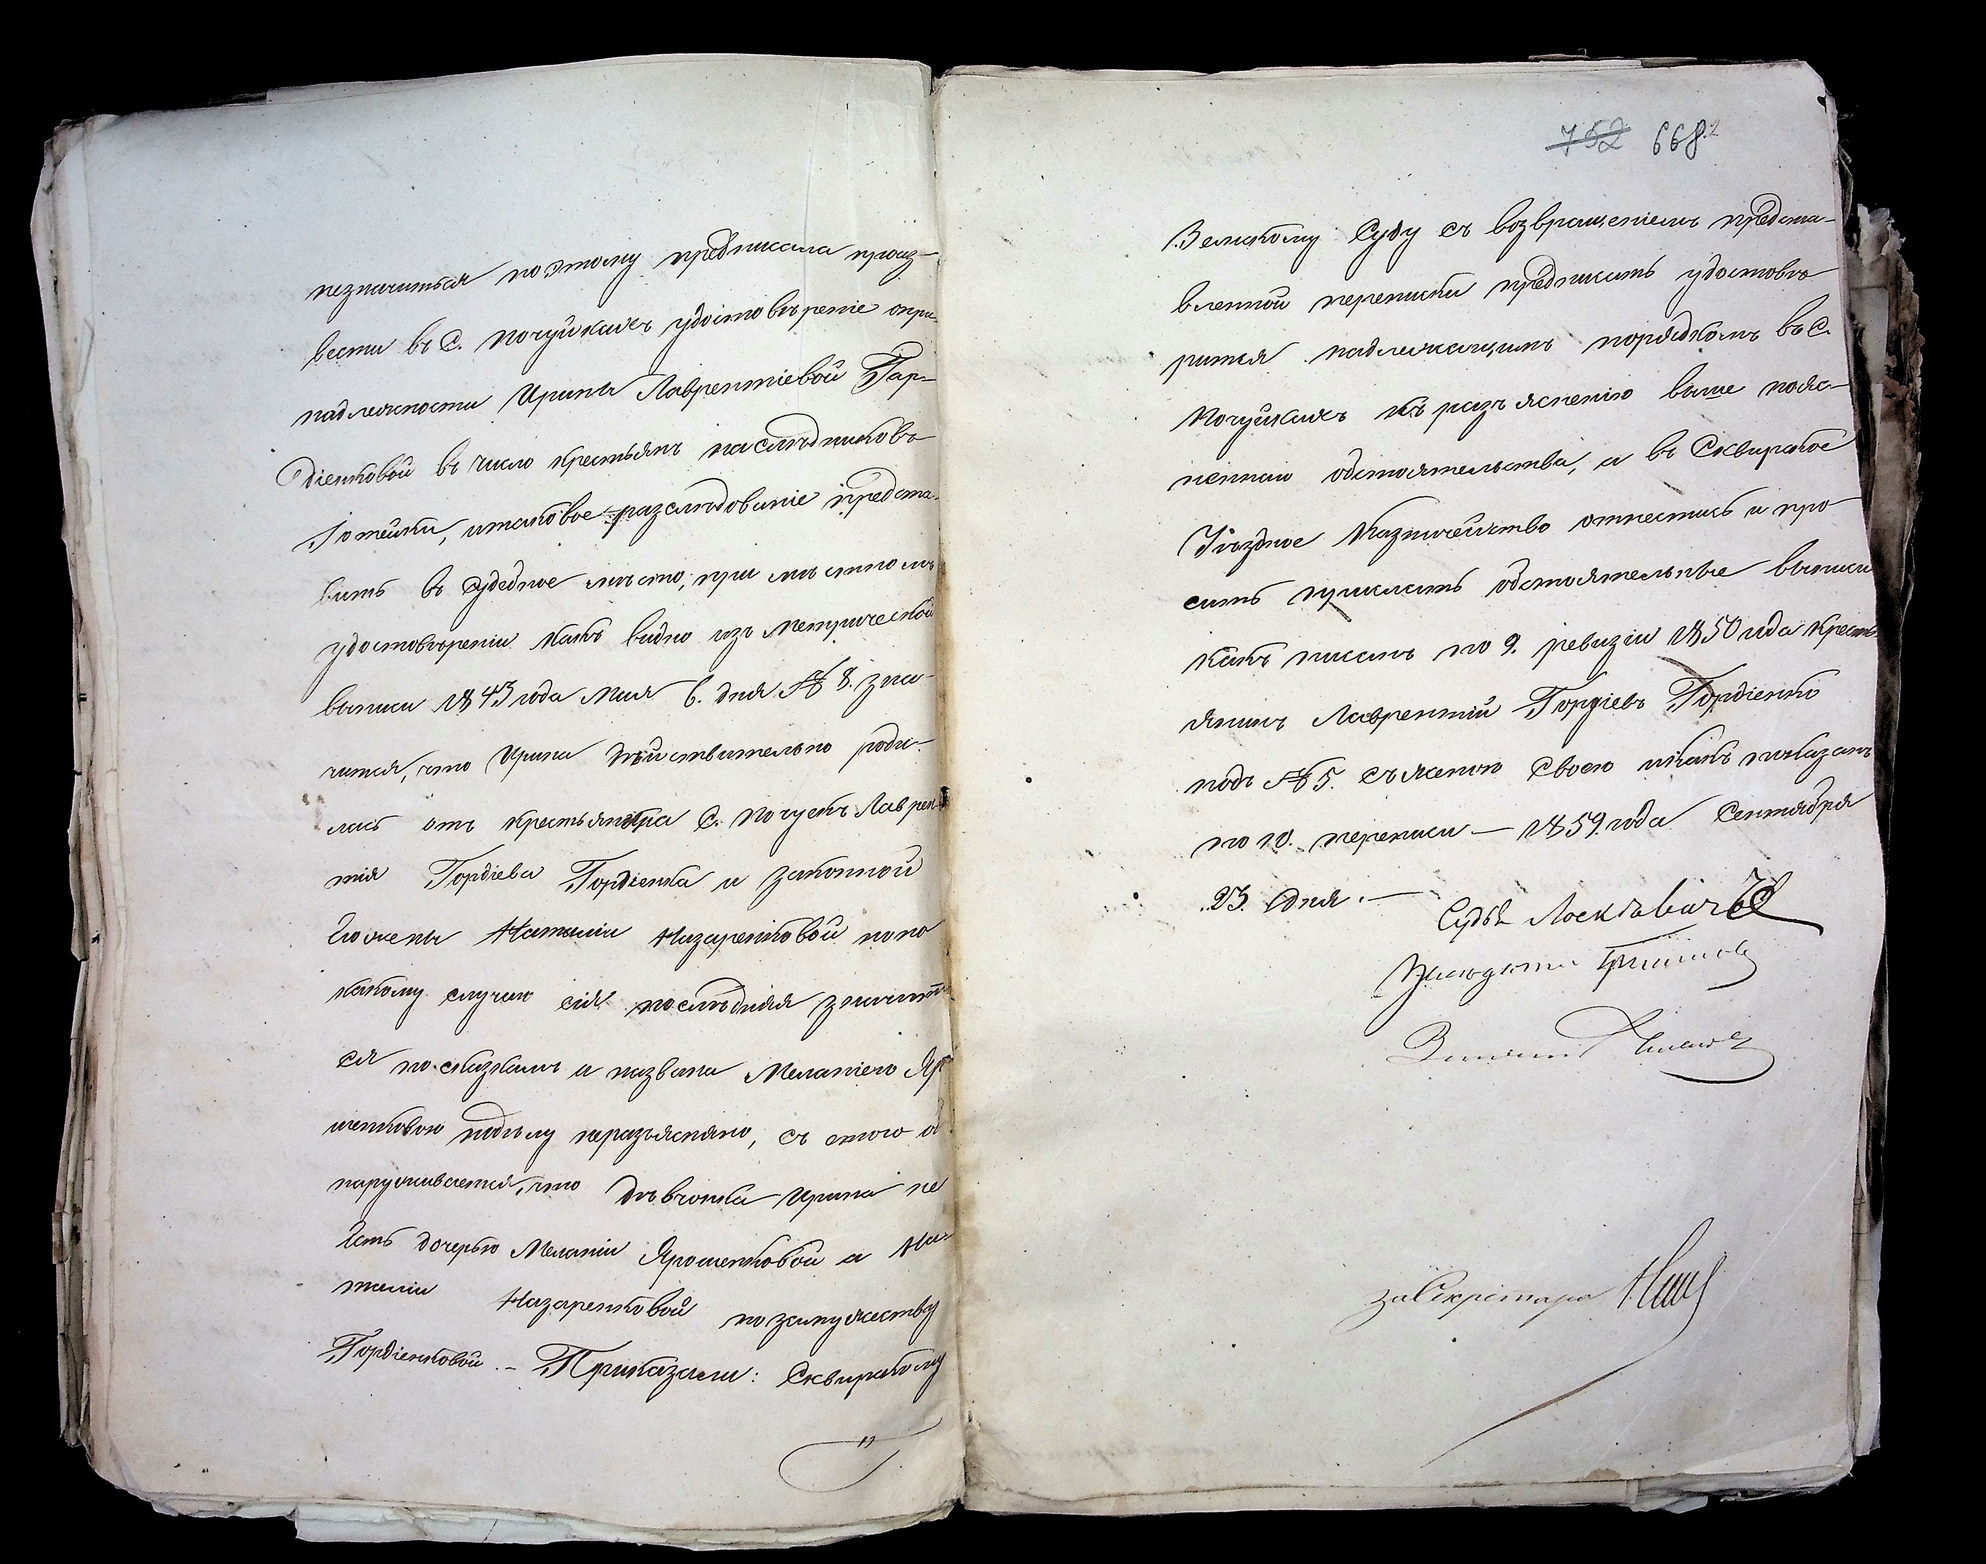 незначиться поэтому предписала произ-
вести въ С. Почуйкахъ удостовѣреніе опри-
надлежности Ирины Лаврентіевой Гар-
діенковой въ число крестьянъ наслѣдниковъ
Готейки, итаковое разслѣдованіе предста-
вить въ судебное мѣсто, при мѣстномъ
удостовѣреніи какъ видно изъ метрической
выписи 1843 года Мая 6. дня № 8. зна-
чится, что Ирина дѣйствительно роди-
лась отъ крестьянина С. Почуекъ Лаврен
тія Гордіева Гордіенка и законной
Его жены Наталіи Назаренковой по по
какому случаю сія послѣдняя значит
ся по сказкамъ и названа Меланіею Яр
шенковою подъму неразъяснено, съ етого об
наруживается, что дѣвчонка Ирина не
Есть дочерью Меланіи Ярошенковой а На-
таліи Назаренковой позамужеству
Гордіенковой. – Приказали: Сквирскому
752 668
Земскому Суду съ возвращеніемъ предста-
вленной переписки предписать удостовѣ
рится надлежащимъ порядкомъ въ С.
Почуйкахъ къ разъясненію выше пояс-
неннаго обстоятельства, а въ Сквирское
Уѣздное Казначейство отнестись и про
сить прислать обстоятельные выписи
какъ писанъ по 9. ревизіи 1850 года кресть
янинъ Лаврентій Гордіевъ Гордіенко
подъ № 5. съ женою своею икакъ показанъ
по 10. переписи — 1859. года Сентября
23. дня. —
Судья
за Секретаря